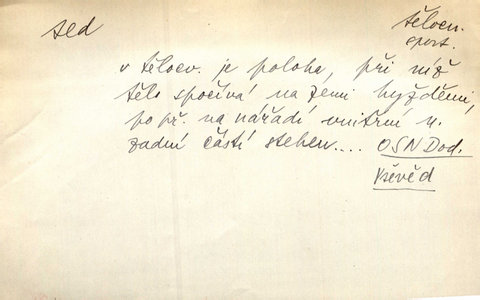 sed
tělocv.
sport.
v tělocv. je poloha, při níž
tělo spočívá na zemi hyžděmi,
popř. na nářadí vnitřní n.
zadní částí stehen.... OSN Dod.
Vševěd